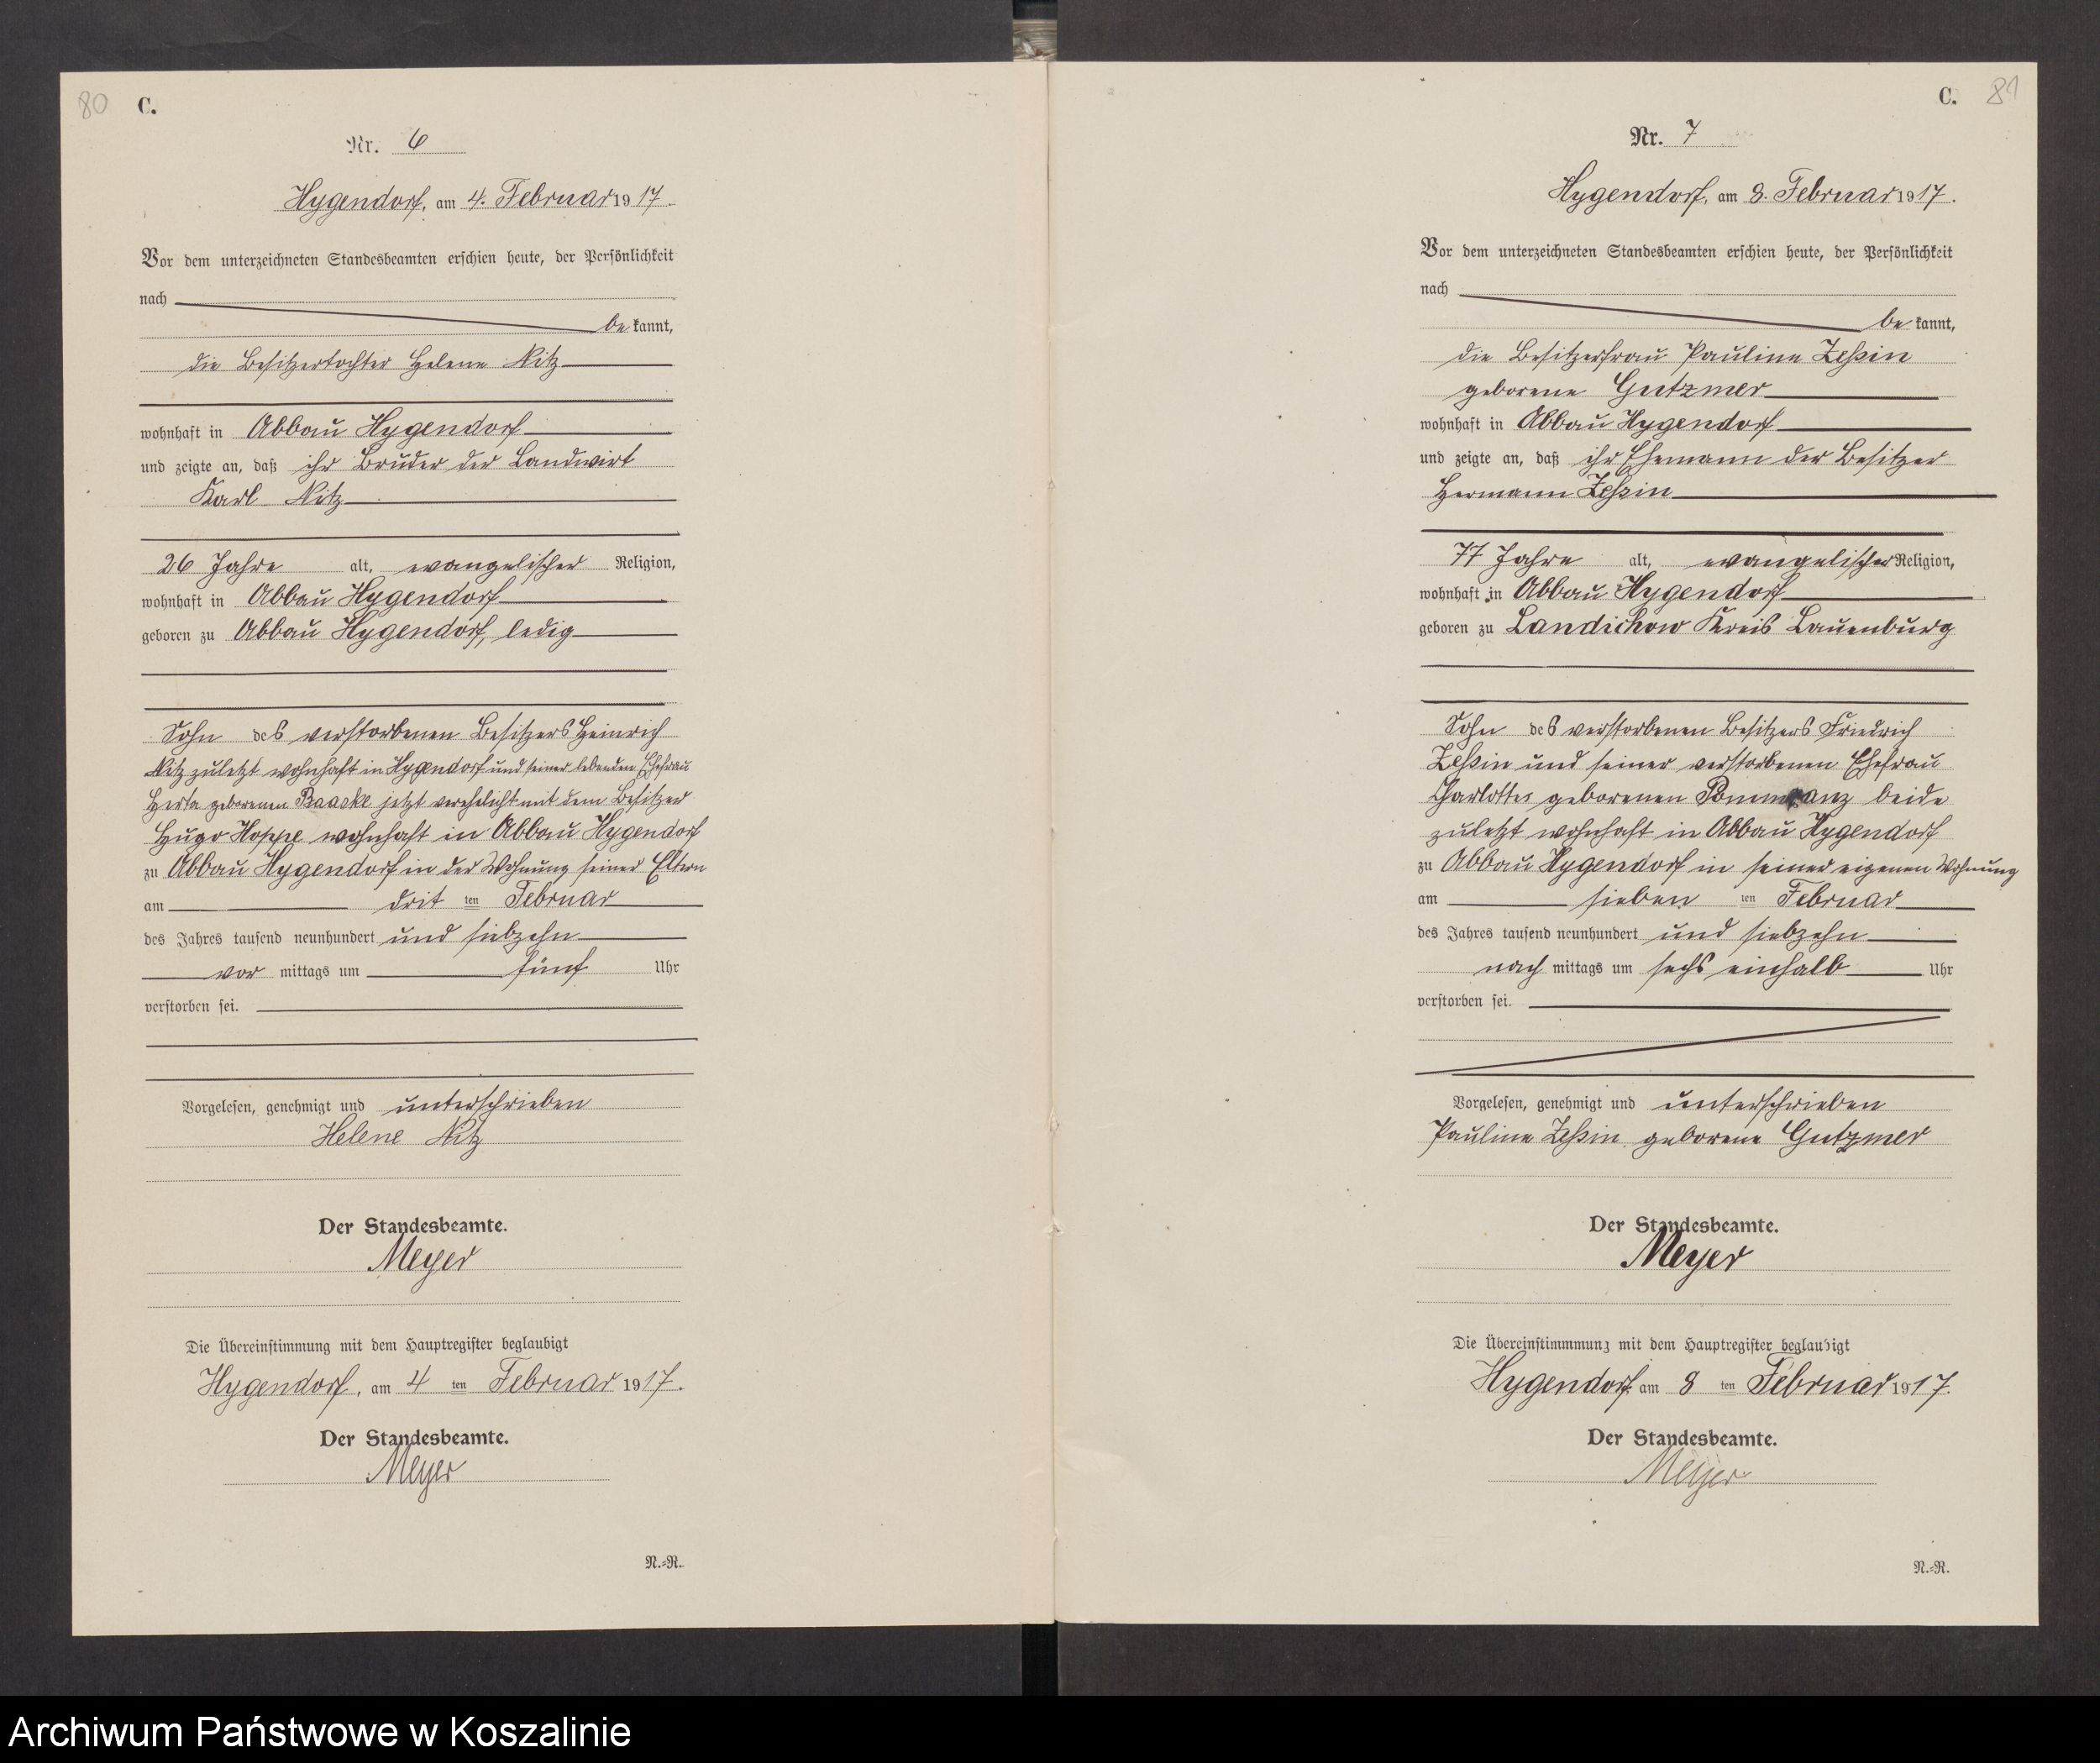 80 C.
Nr. 6
Hygendorf, am 4. Februar 1917.
Vor dem unterzeichneten Standesbeamten erschien heute, der Persönlichkeit
nach
be kannt,
die Besitzertochter Helene Nitz
wohnhaft in Abbau Hygendorf
und zeigte an, daß ihr Bruder der Landwirt
Karl Nitz
26 Jahre alt, evangelischer Religion,
wohnhaft in Abbau Hygendorf
geboren zu Abbau Hygendorf, ledig
Sohn des verstorbenen Besitzers Heinrich
Nitz zuletzt wohnhaft in Hygendorf und seiner lebenden Ehefrau
Herta geborenen Raaske jetzt verehelicht mit dem Besitzer
Hugo Hoppe wohnhaft in Abbau Hygendorf
zu Abbau Hygendorf in der Wohnung seiner Eltern
am drit ten Februar
des Jahres tausend neunhundert und siebzehn
vor mittags um fünf Uhr
verstorben sei.
Vorgelesen, genehmigt und unterschrieben
Helene Nitz
Der Standesbeamte.
Meyer
Die Übereinstimmung mit dem Hauptregister beglaubigt
Hygendorf, am 4 ten Februar 1917.
Der Standesbeamte.
Meyer
N.=R.
C. 81
Nr. 7
Hygendorf, am 8. Februar 1917.
Vor dem unterzeichneten Standesbeamten erschien heute, der Persönlichkeit
nach
be kannt,
die Besitzerfrau Pauline Zeßin
geborene Gutzmer
wohnhaft in Abbau Hygendorf
und zeigte an, daß ihr Ehemann der Besitzer
Hermann Zeßin
77 Jahre alt, evangelischer Religion,
wohnhaft in Abbau Hygendorf
geboren zu Landichow Kreis Lauenburg
Sohn des verstorbenen Besitzers Friedrich
Zeßin und seiner verstorbenen Ehefrau
Charlotte geborenen Pommranz beide
zuletzt wohnhaft in Abbau Hygendorf
zu Abbau Hygendorf in seiner eigenen Wohnung
am sieben ten Februar
des Jahres tausend neunhundert und siebzehn
nach mittags um sechs einhalb Uhr
verstorben sei.
Vorgelesen, genehmigt und unterschrieben
Pauline Zeßin geborene Gutzmer
Der Standesbeamte.
Meyer
Die Übereinstimmmung mit dem Hauptregister beglaubigt
Hygendorf, am 8 ten Februar 1917.
Der Standesbeamte.
Meyer
N.=R.
Archiwum Państwowe w Koszalinie